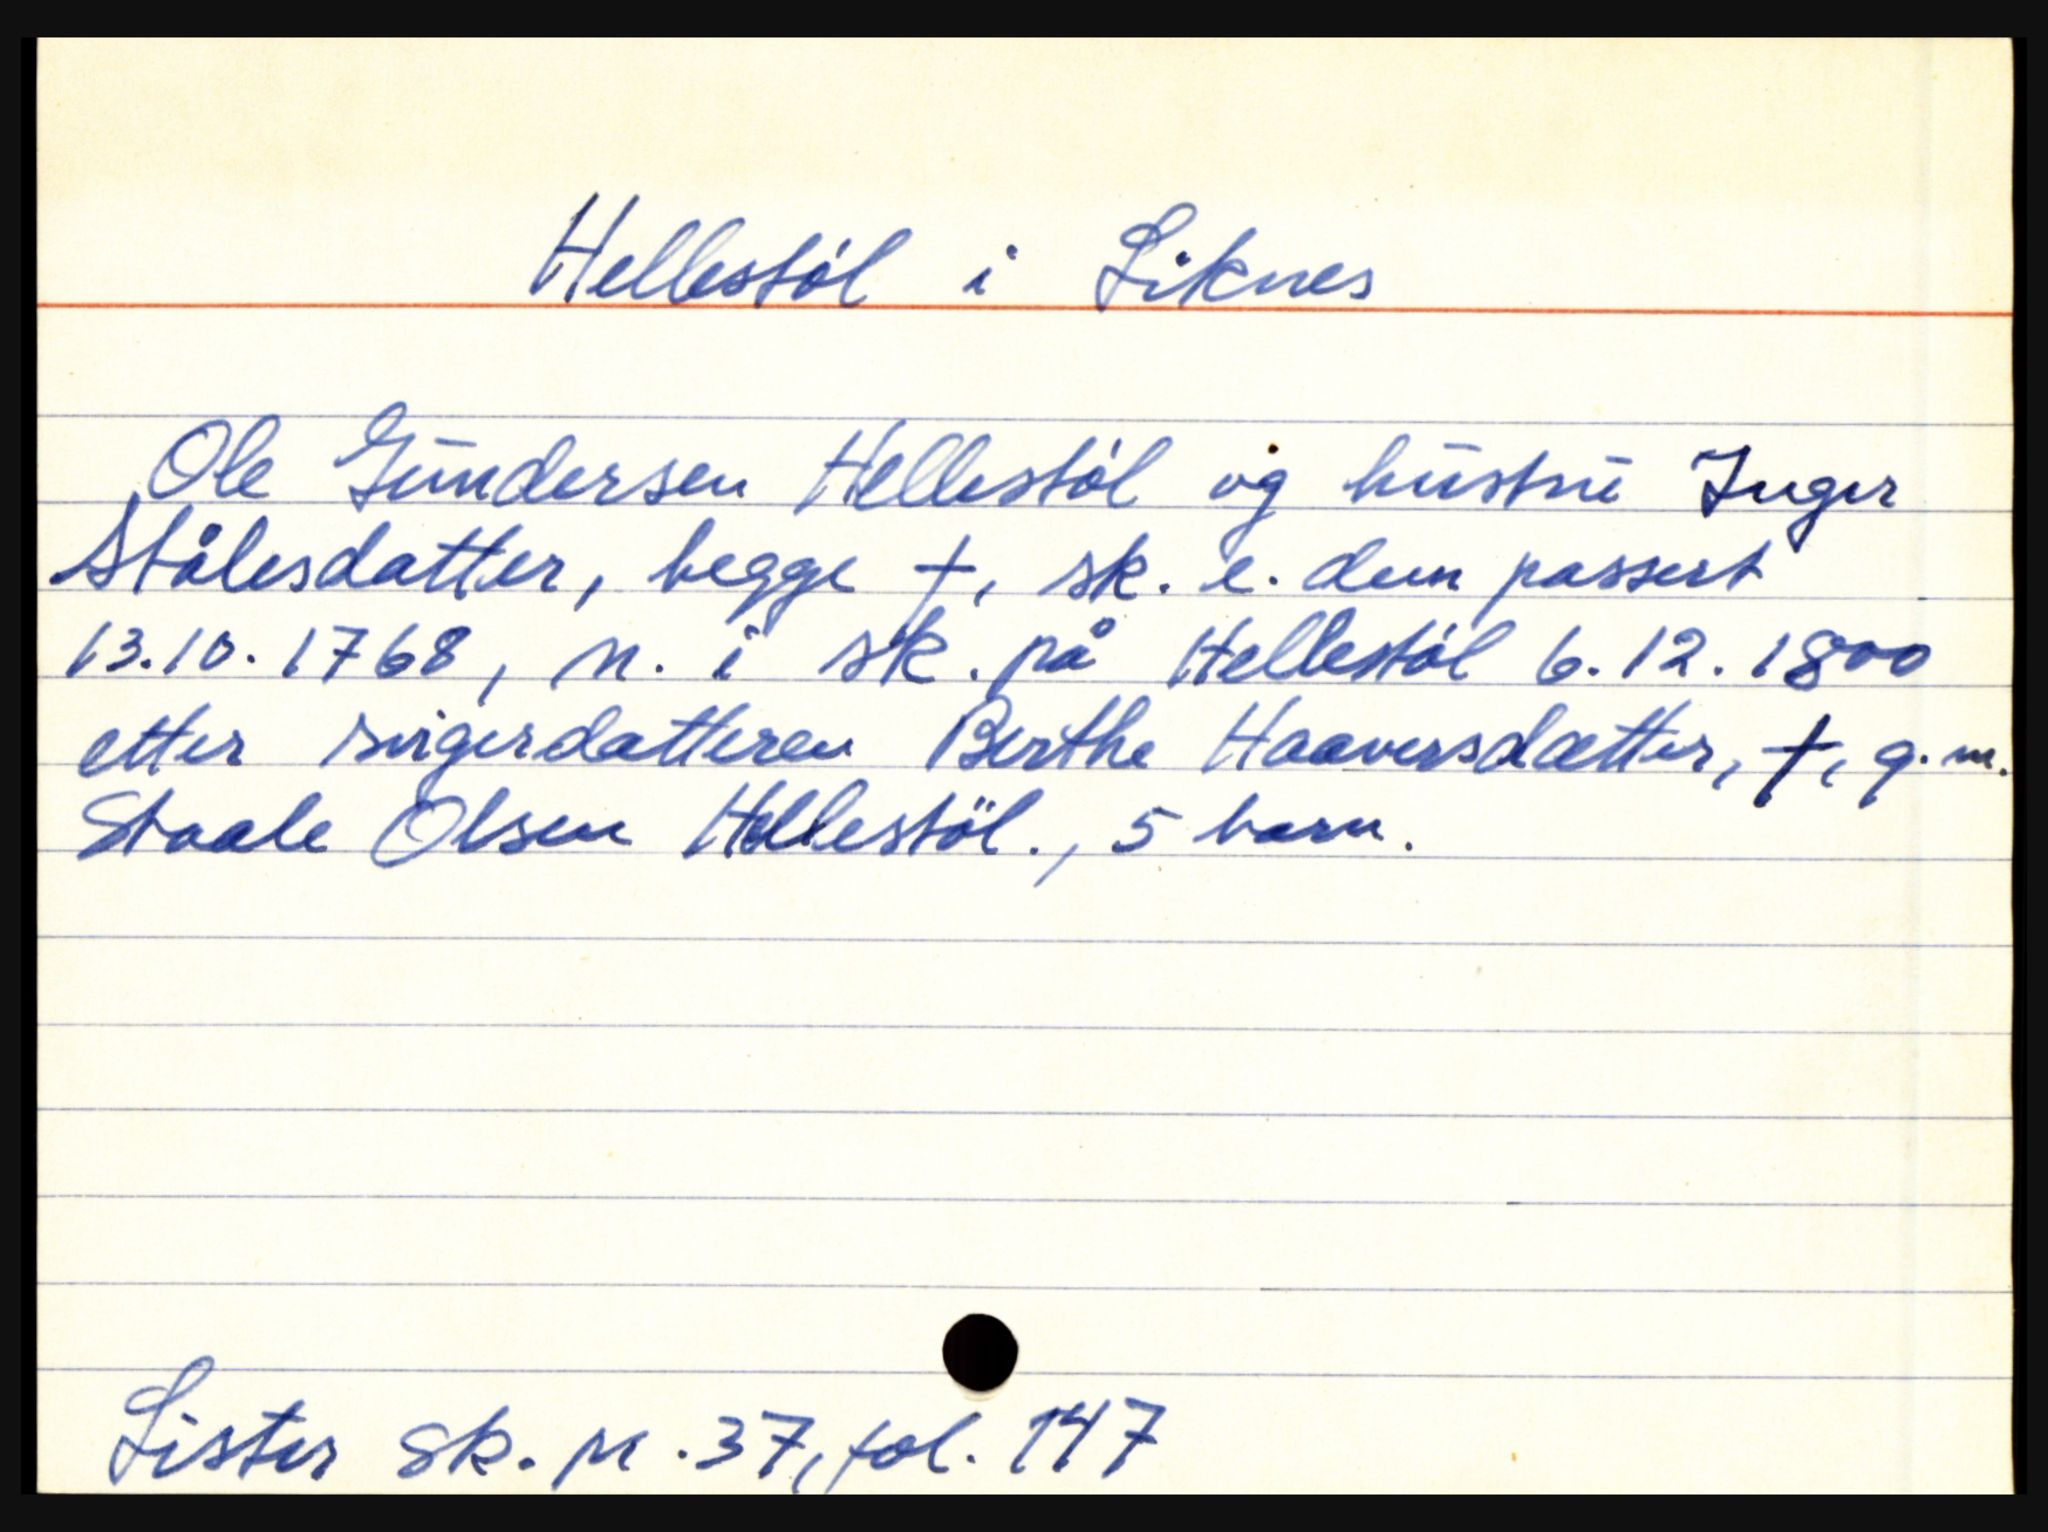 Hellestöl i Liknes
Ole Gundersen Hellestöl og hustru Inger
Stålesdatter, begge †, sk. e. dem passert
13.10.1768, n. i sk. på Hellestöl 6.12.1800
etter svigerdatteren Berthe Haaversdatter, †, g.m.
Staale Olsen Hellestöl., 5 barn.
Lister sk. pr. 37, fol. 147